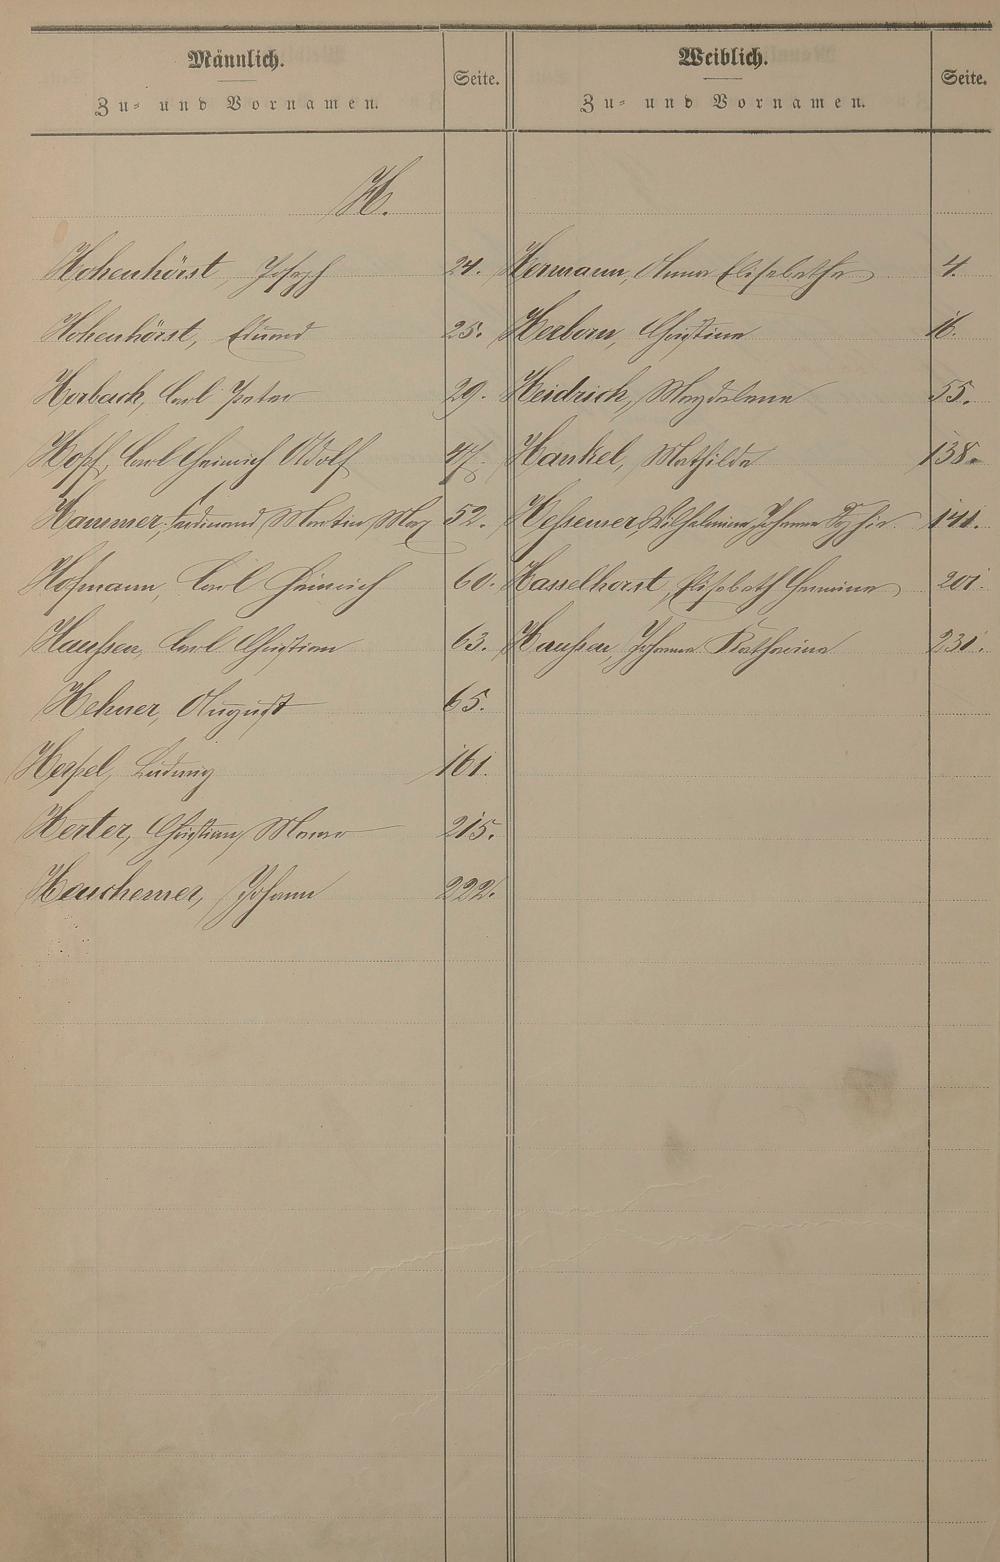 Männlich.
Zu- und Vornamen.
Seite.
Weiblich.
Zu- und Vornamen.
Seite.
H.
Hohenhörst, Joseph 24.
Hermann, Anna Elisabetha 4.
Hohenhörst, Eduard 25.
Herborn, Christine 16.
Horbach, Carl Peter 29.
Heidrich, Magdalena 55.
Hopf, Carl Heinrich Adolf 47.
Hankel, Mathilde 138.
Hammer, Ferdinand Martin Max 52.
Hessemer, Wilhelmine Johanna Sophie 141.
Hofmann, Carl Heinrich 60.
Hasselhorst, Elisabeth Hermine 201.
Haußen, Carl Christian 63.
Haußen, Johanna Katharina 231.
Hehner, August 65.
Herpel, Ludwig 161.
Herter, Christian 215.
Heuchemer, Johann 222.